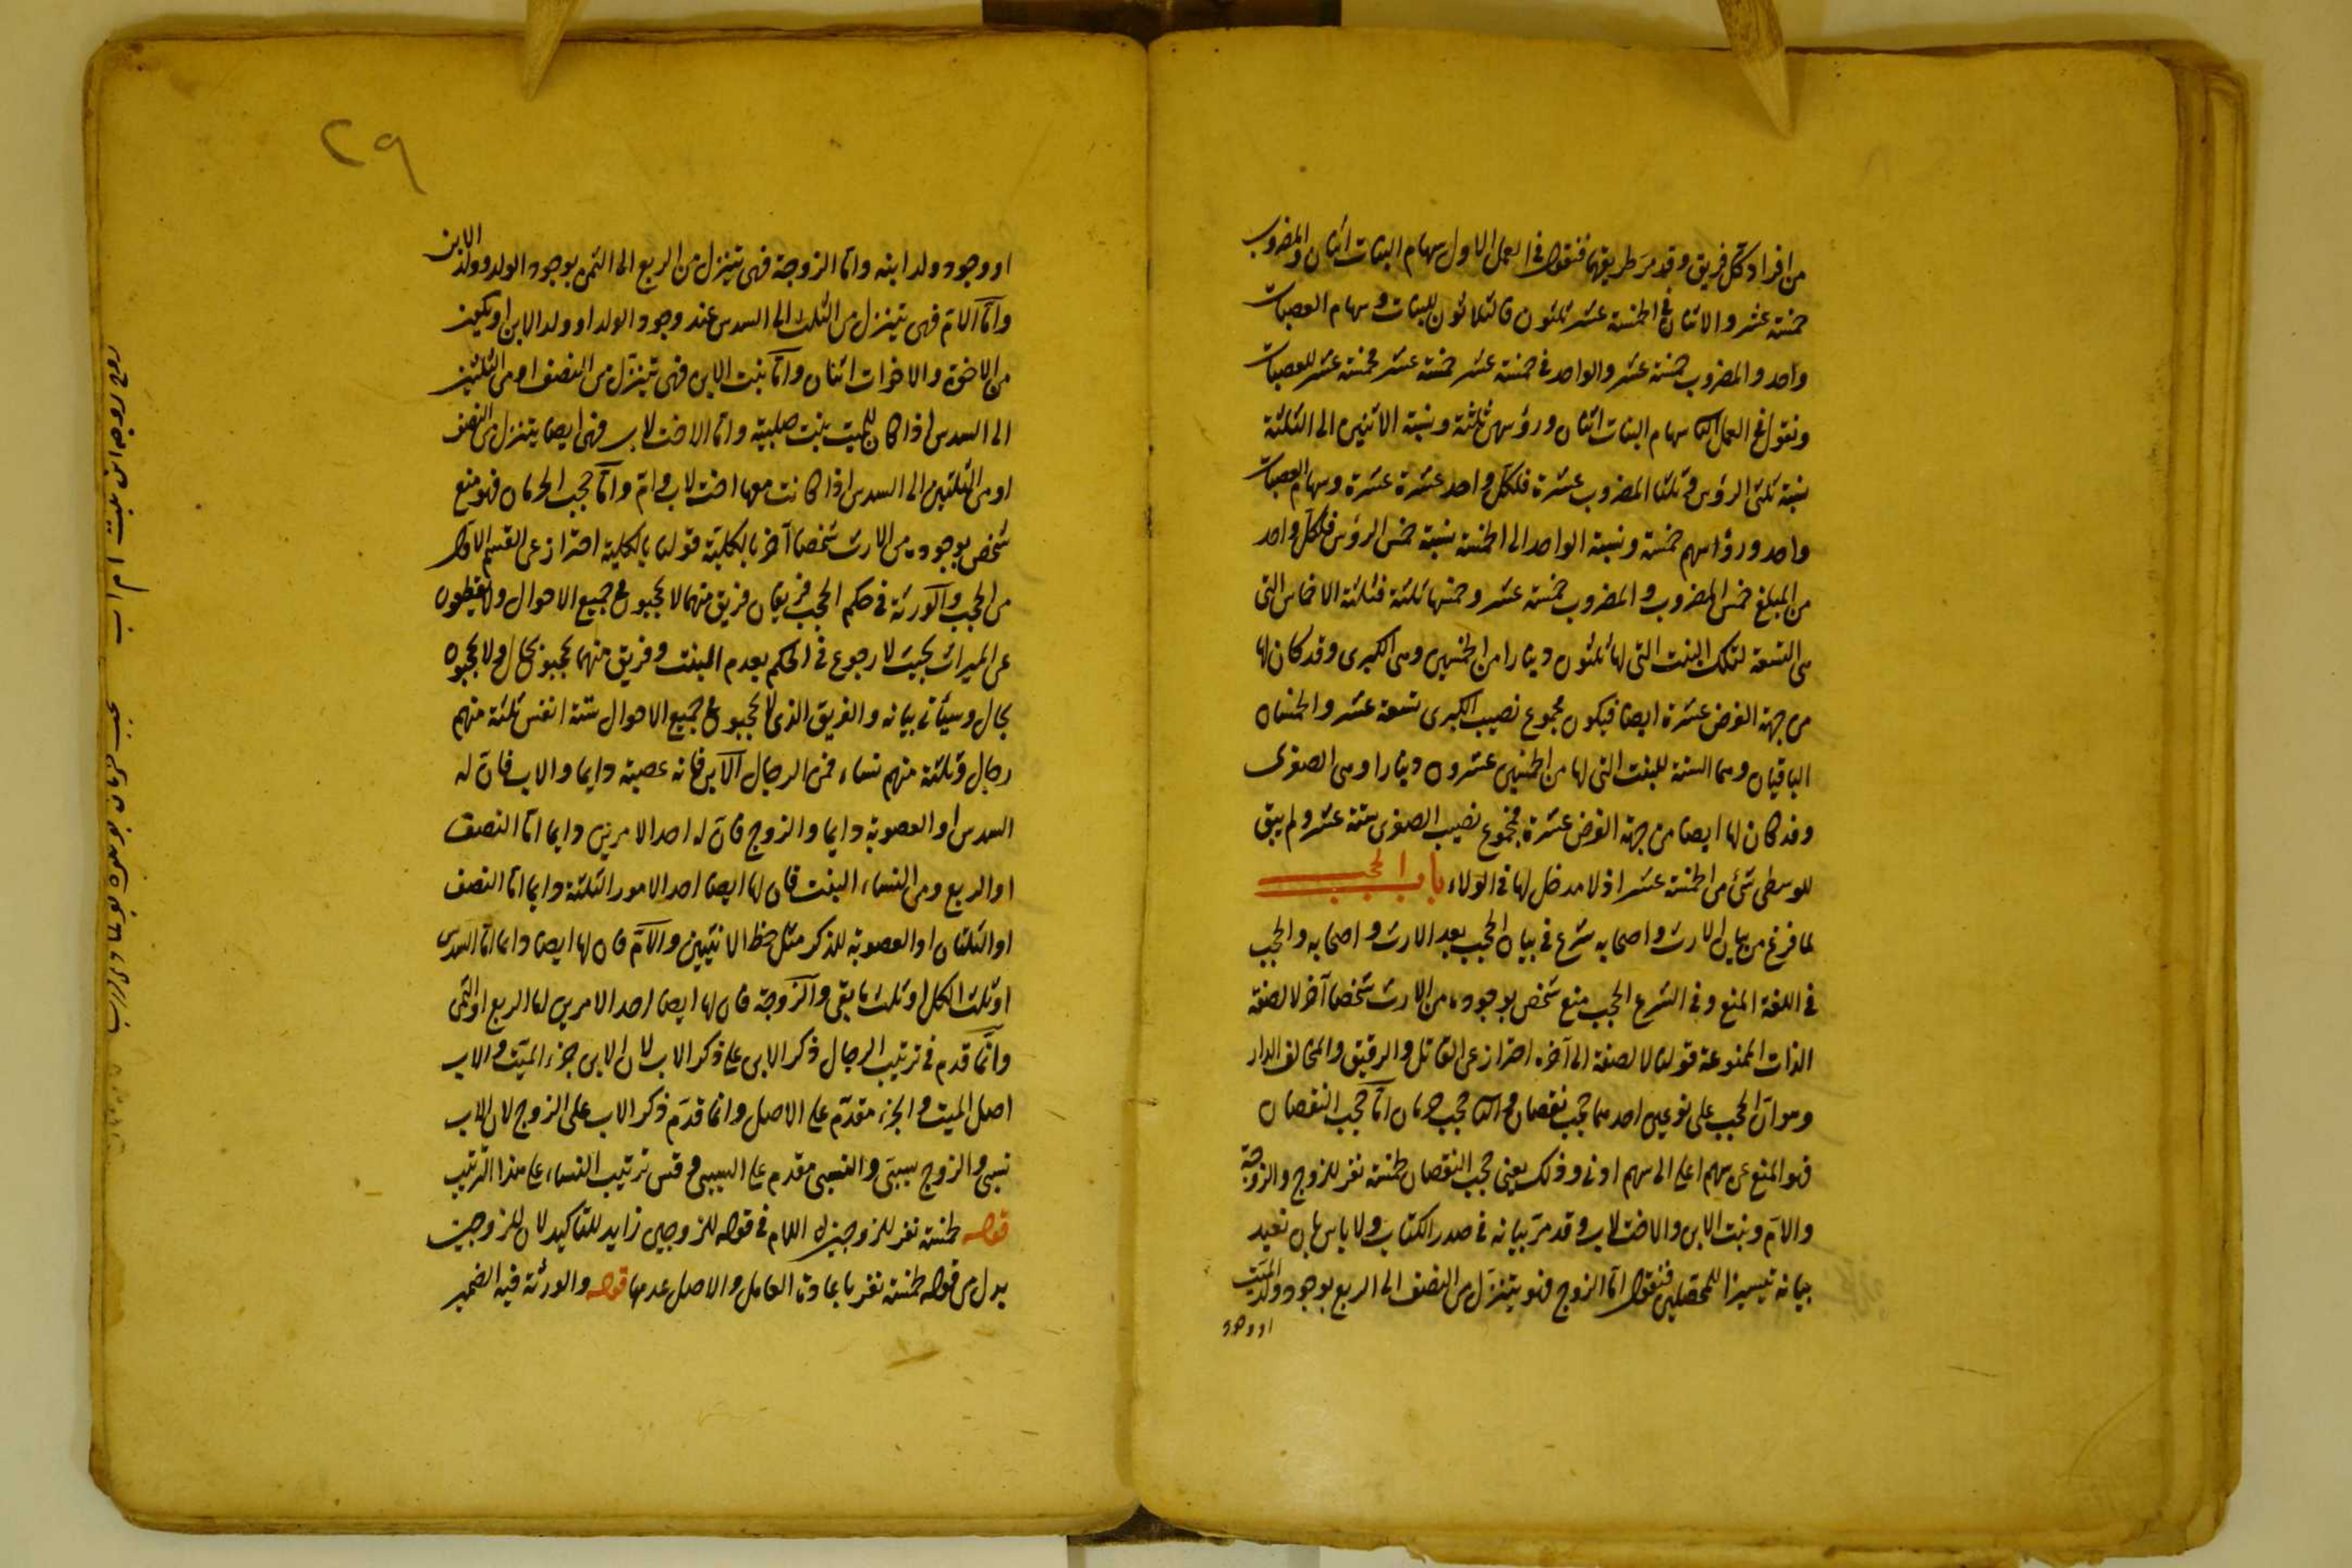 من افراد كل فريق وقد مر طريقهما فنقول في العمل الاول سهام البنات اثنان والمضروب
خمسة عشر والاثنان في الخمسة عشر ثلثون فالثلاثون للبنات وسهام العصبات
واحد والمضروب خمسة عشر والواحد في خمسة عشر خمسة عشر فخمسة عشر للعصبات
ونقول في العمل الثا سهام البنات اثنان ورؤسهن ثلثة ونسبة الاثنين الى الثلثة
نسبة ثلثى الرؤس وثلثا المضروب عشرة فلكل واحد عشرة عشرة وسهام العصبات
واحد ورؤسهم خمسة ونسبة الواحد الى الخمسة نسبة خمس الرؤس فلكل واحد
من المبلغ خمس المضروب والمضروب خمسة عشر وخمسها ثلثة فثلثة الاخماس التى
هى التسعة لتلك البنت التى لها ثلثون دينارا من الخمسين وهى الكبرى وقد كان لها
من جهة الفرض عشرة ايضا فيكون مجموع نصيب الكبرى تسعة عشر والخمسان
الباقيان وهما الستة للبنت التى لها من الخمسين عشرون دينارا وهى الصغرى
وقد كان لها ايضا من جهة الفرض عشرة فمجموع نصيب الصغرى ستة عشر ولم يبق
للوسطى شئ من الخمسة عشر اذ لا مدخل لها فى الولاء باب الحجب
لما فرغ من بيان الارث واصحابه شرع فى بيان الحجب بعد الارث واصحابه والحجب
فى اللغة المنع وفى الشرع الحجب منع شخص بوجوده من الارث شخصا آخر لا لصفة
الذات الممنوعة قولنا لا لصفة الى آخره احتراز عن القاتل والرقيق والمخالف الدار
وهو اى الحجب على نوعين احدهما حجب نقصان والثا حجب حرمان اما حجب النقصان
فهو المنع عن سهم اعلى الى سهم ادنى وذلك يعنى حجب النقصان لخمسة نفر للزوج والزوجة
والام وبنت الابن والاخت لاب وقد مر بيانه فى صدر الكتاب ولا باس بان نعيد
بيانه تيسيرا للمحصلين فنقول اما الزوج فهو يتنزل من النصف الى الربع بوجود ولد الميت
او وجود
٢٩
او وجود ولد ابنه واما الزوجة فهى تتنزل من الربع الى الثمن بوجود الولد وولد الابن
واما الام فهى تتنزل من الثلث الى السدس عند وجود الولد او ولد الابن او يكون
من الاخوة والاخوات اثنان واما بنت الابن فهى تتنزل من النصف او من الثلثين
الى السدس اذا كان للميت بنت صلبية واما الاخت لاب فهى ايضا يتنزل من النصف
او من الثلثين الى السدس اذا كانت معها اخت لاب وام واما حجب الحرمان فهو منع
شخص بوجوده من الارث شخصا آخر بالكلية قولنا بالكلية احتراز عن القسم الاول
من الحجب والورثة فى حكم الحجب فريقان فريق منهما لا يحجبون فى جميع الاحوال ولا يقطعون
عن الميراث بحيث لا رجوع فى الحكم بعدم البنت وفريق منهما يحجبون بحال ولا يحجبون
بحال وسيأتى بيانه والفريق الذى لا يحجبون فى جميع الاحوال ستة انفس ثلثة منهم
رجال وثلثة منهم نساء فمن الرجال الابن فانه عصبة دايما والاب فان له
السدس او العصوبة دايما والزوج فان له احد الامرين دايما اما النصف
او الربع ومن النساء البنت فان لها ايضا احد الامور الثلثة دايما اما النصف
او الثلثان او العصوبة للذكر مثل حظ الانثيين والام فان لها ايضا دايما اما السدس
او ثلث الكل او ثلث ما بقى والزوجة فان لها ايضا احد الامرين اما الربع او الثمن
وانما قدم فى ترتيب الرجال ذكر الابن على ذكر الاب لان الابن جزء الميت والاب
اصل الميت والجزء مقدم على الاصل وانما قدم ذكر الاب على الزوج لان الاب
نسبى والزوج سببى والنسبى مقدم على السببى وقس ترتيب النساء على هذا الترتيب
قوله لخمسة نفر للزوجين اللام فى قوله للزوجين زايد للتاكيد لان للزوجين
بدل من قوله لخمسة نفر باعادة العامل والاصل عدمها قوله والورثة فيه الضمير